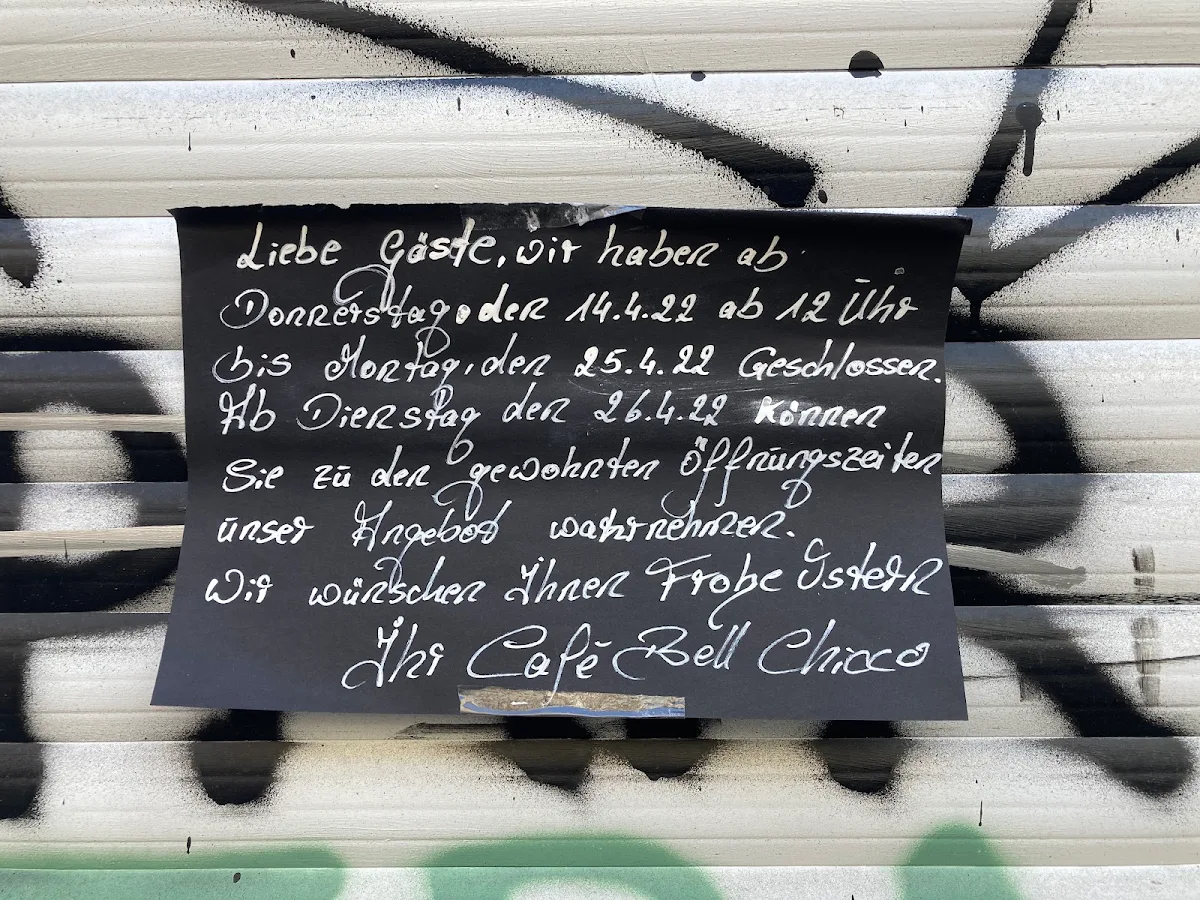 Liebe Gäste, wir haben ab
Donnerstag, den 14.4.22 ab 12 Uhr
bis Montag, den 25.4.22 Geschlossen.
Ab Dienstag den 26.4.22 können
Sie zu den gewohnten Öffnungszeiten
unser Angebot wahrnehmen.
Wir wünschen Ihnen Frohe Ostern
Ihr Café Bell Chicco